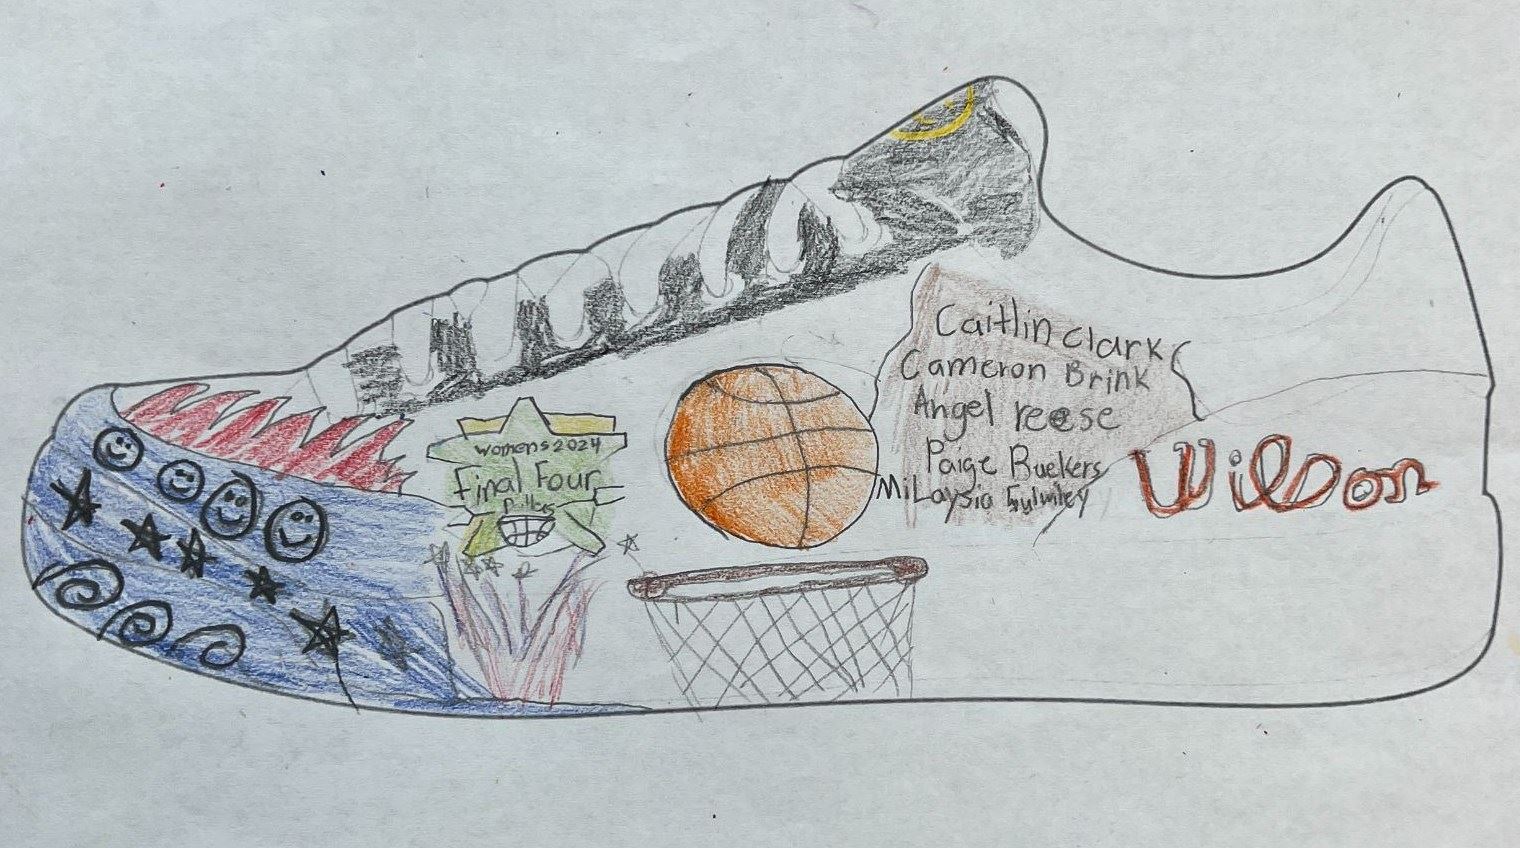 womens 2024
Final Four
Caitlin Clark
Cameron Brink
Angel reese
Paige Buekers
MiLaysia Fulwiley
Wilson